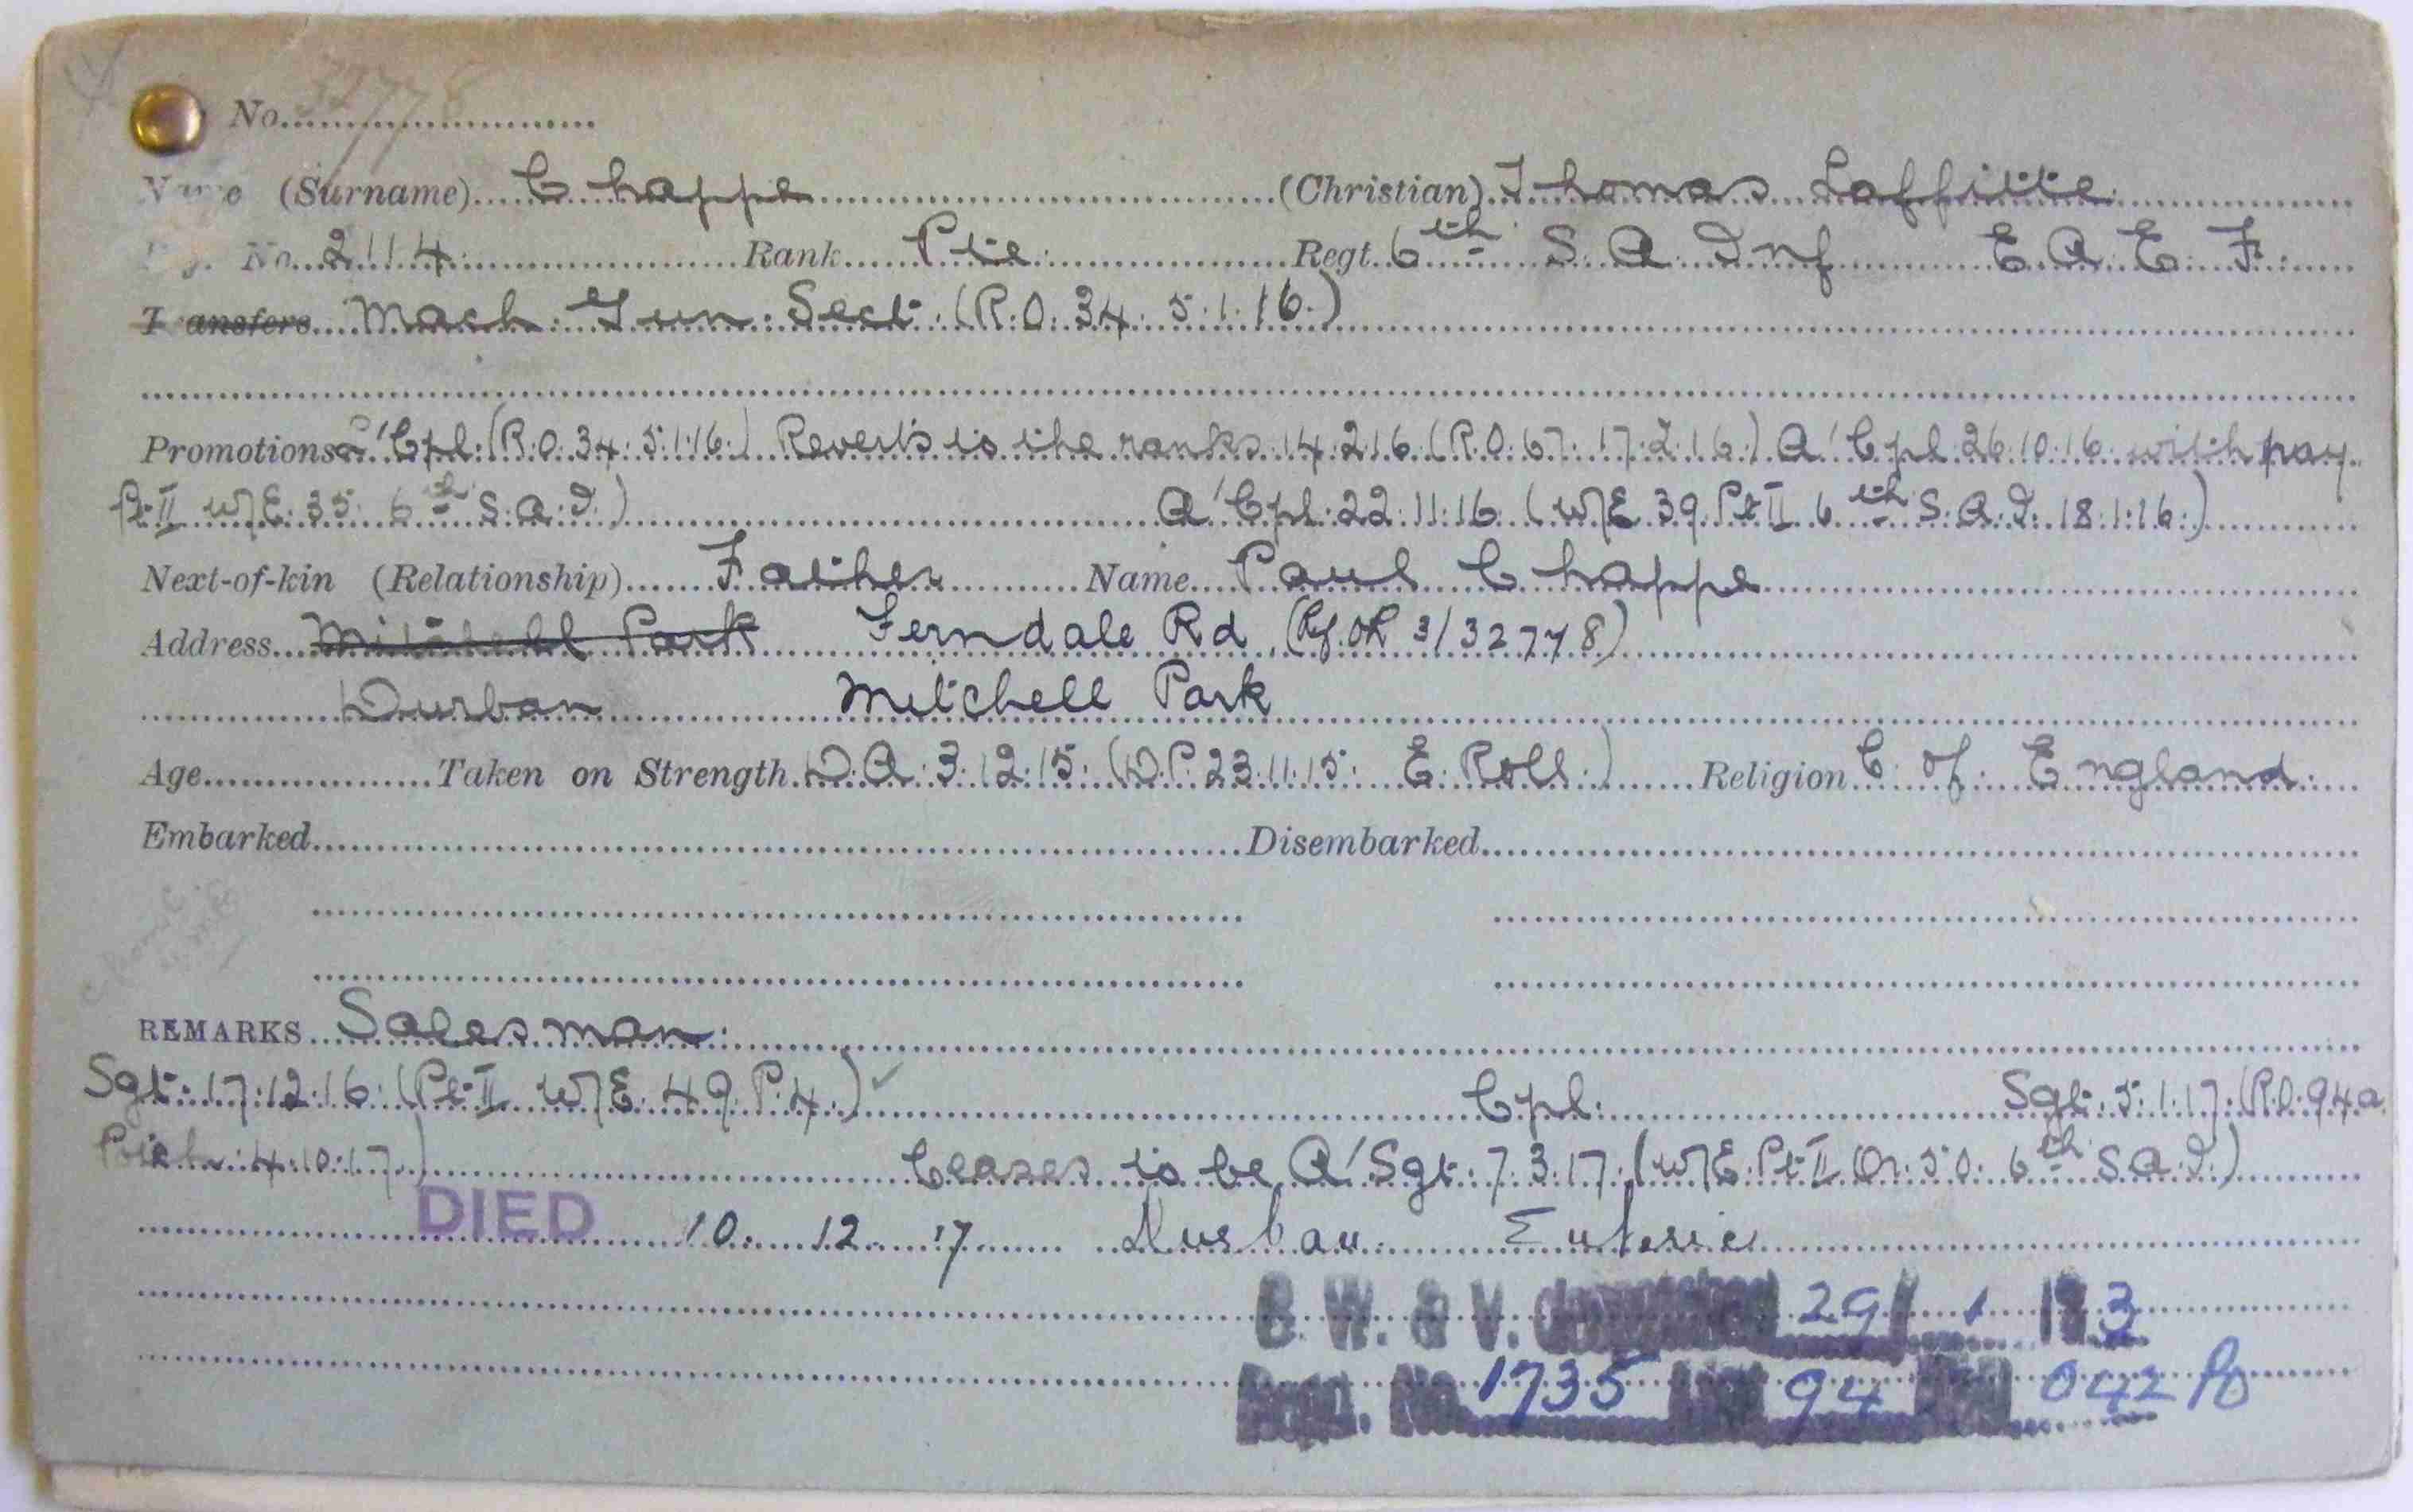 No. 32778
Name (Surname) Chappe (Christian) Thomas Laffitte
No. 2114 Rank Pte. Regt. 6th S. A. Inf E. A. E. F.
Transfers Mach. Gun. Sect. (R.O. 34. 5.1.16.)
Promotions A/Cpl. (R.O. 34. 5.1.16.) Reverts to the ranks 14.2.16 (R.O. 67. 17.2.16.) A/Cpl 26.10.16 with pay
Pt II W/E. 35. 6th S.A.I.) A/Cpl. 22.11.16 (W/E 39 Pt II 6th S.A.I. 18.1.16.)
Next-of-kin (Relationship) Father Name Paul Chappe
Address Mitchell Park Ferndale Rd (Rf. OR 3/32778)
Durban Mitchell Park
Age Taken on Strength D.A. 3.12.15. (D.P. 23.11.15. E. Roll.) Religion C. of. England.
Embarked Disembarked
REMARKS Salesman.
Sgt. 17.12.16. (Pt II W/E. 49. P.4.) Cpl. Sgt. 5.1.17. (R.O. 94a
4.10.17.) Ceases to be A/Sgt. 7.3.17. (W/E. Pt II Or. 50. 6th S.A.I.)
DIED 10. 12. 17 Durban Enteric
B. W. & V. despatched 29/ 1 3
Regd. No. 1735 List 94 042